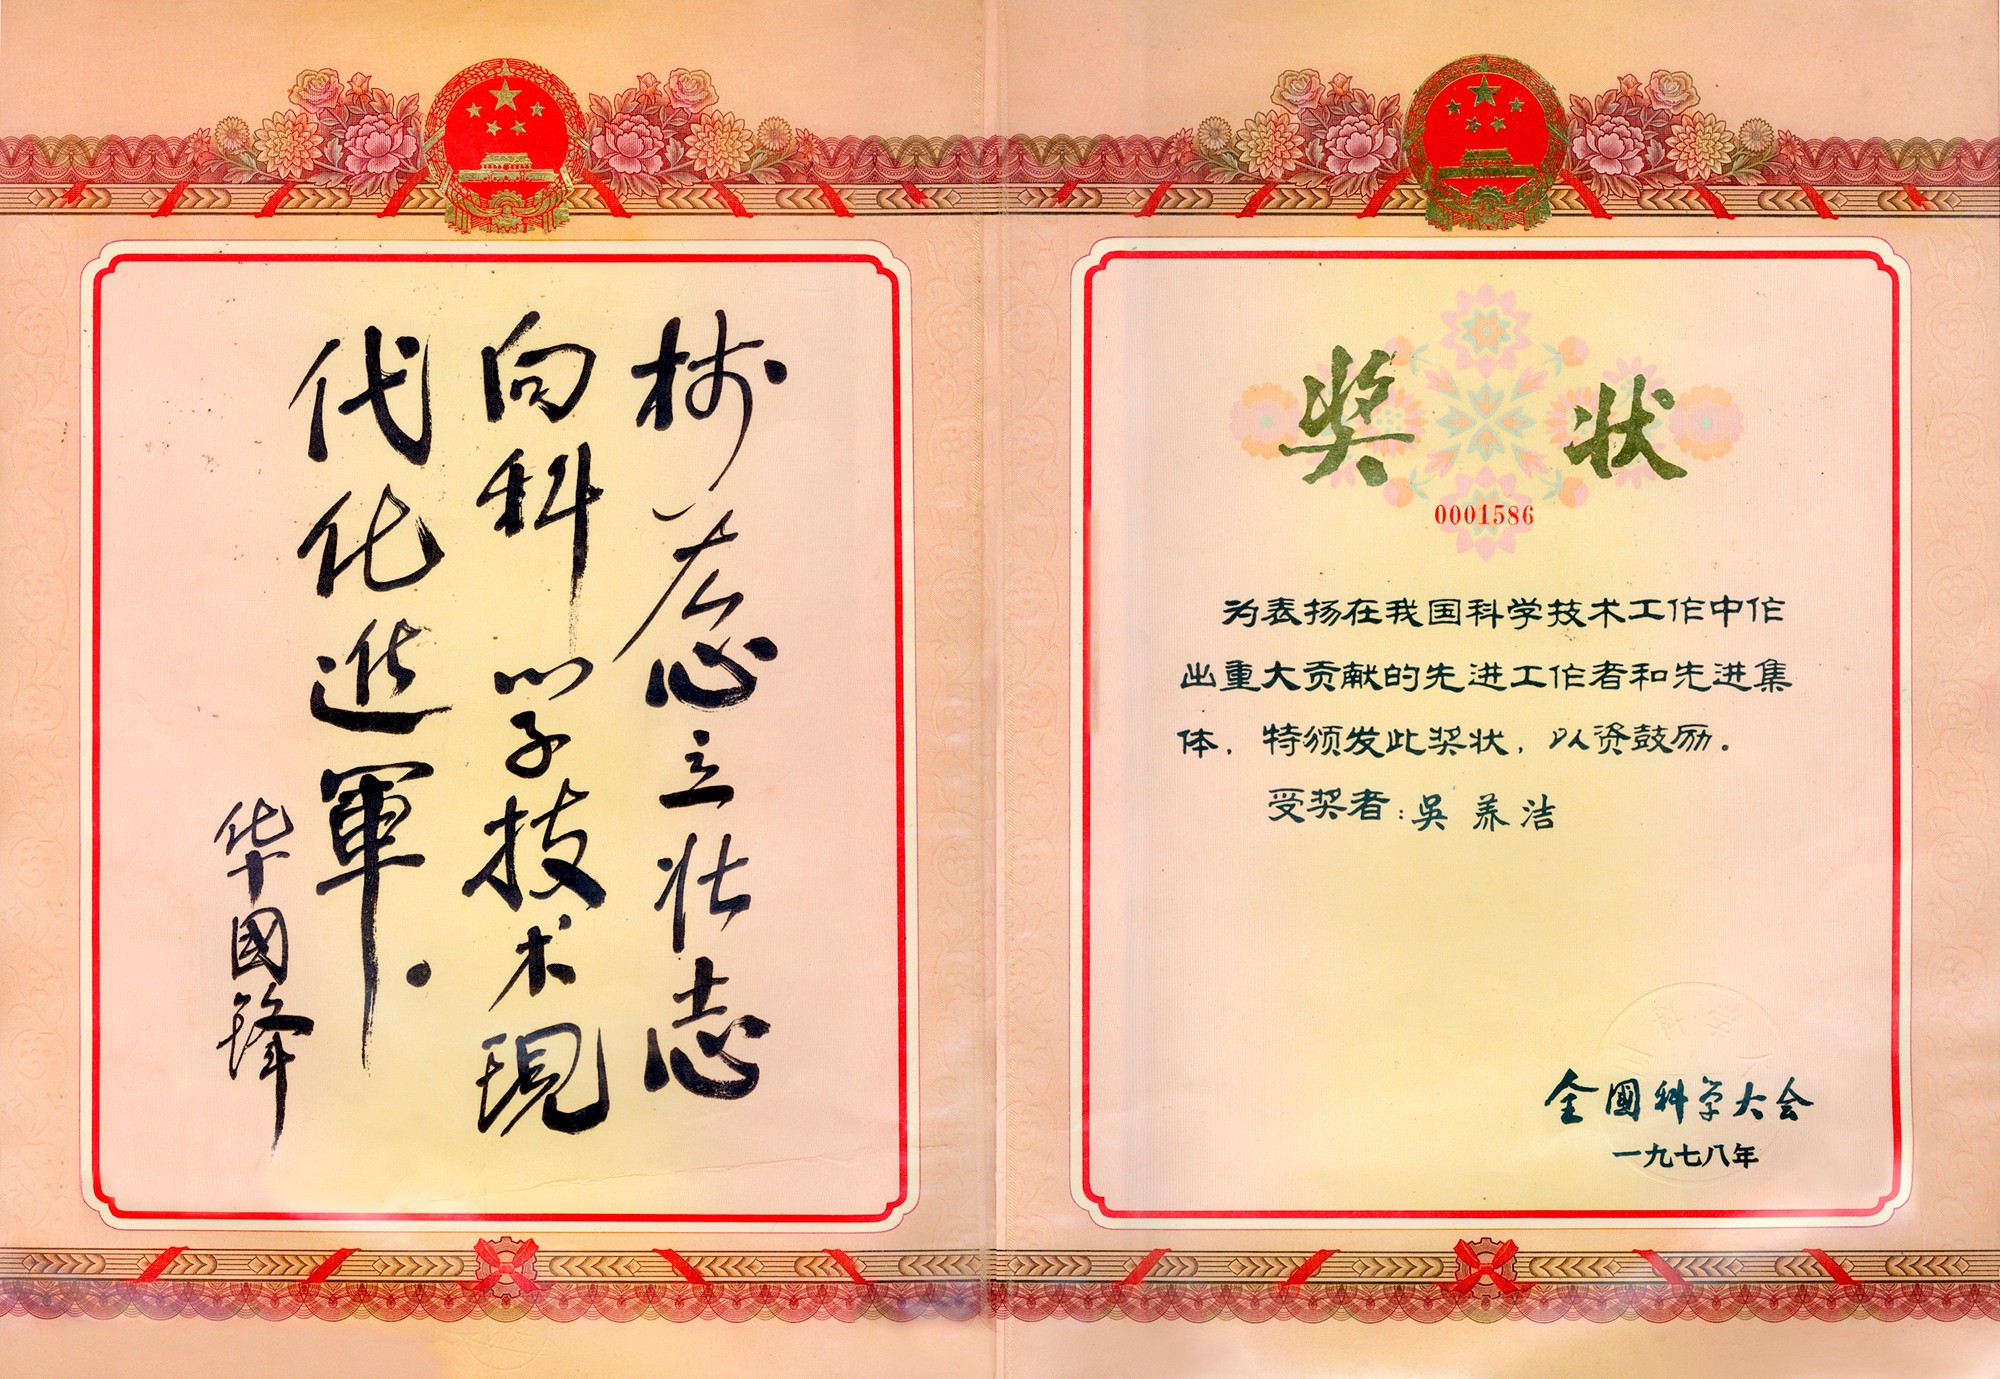 树雄心立壮志
向科学技术現
代化進軍.
华國鋒
奖状
0001586
为表扬在我国科学技术工作中作
出重大贡献的先进工作者和先进集
体，特颁发此奖状，以资鼓励。
受奖者：吳养洁
全國科学大会
一九七八年